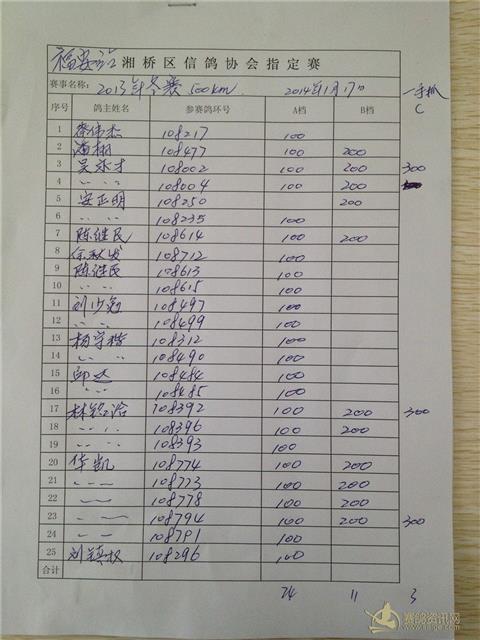 福安站 湘桥区信鸽协会指定赛
赛事名称: 2013年冬赛 500km 2014年1月17日 一手抓
序号 鸽主姓名 参赛鸽环号 A档 B档 C
1 蔡伟杰 108217 100
2 潘栩 108477 100 200
3 吴永才 108002 100 200 300
4 〃 〃 108004 100 200
5 安正明 108250 200
6 〃 〃 108235 100
7 陈继民 108614 100 200
8 余秋发 108712 100
9 陈继民 108613 100
10 〃 〃 108615 100
11 刘少勉 108497 100
12 〃 〃 108499 100
13 杨宇楷 108312 100
14 〃 〃 108490 100
15 邱达 108484 100
16 〃 〃 108485 100
17 林 108392 100 200 300
18 〃 〃 108396 100 200
19 〃 〃 108393 100
20 华凯 108774 100 200
21 〃 〃 108773 100 200
22 〃 〃 108778 100 200
23 〃 〃 108794 100 200 300
24 〃 〃 108791 100
25 刘镇权 108296 100
合计
24 11 3
赛鸽资讯网